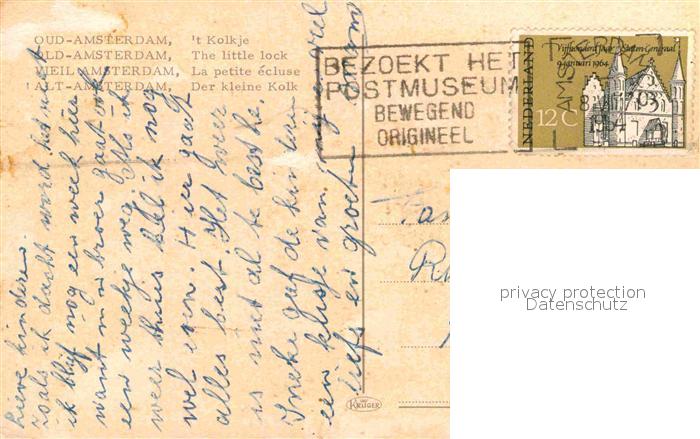 OUD-AMSTERDAM, 't Kolkje
OLD-AMSTERDAM, The little lock
VIEIL-AMSTERDAM, La petite écluse
ALT-AMSTERDAM, Der kleine Kolk
BEZOEKT HET
POSTMUSEUM
BEWEGEND
ORIGINEEL
AMSTERDAM
1964
NEDERLAND
Vijfhonderd Jaar Staten-Generaal
9 januari 1964
12 C
Lieve kinderen.
Zoals ik dacht word het niet
ik blijf nog een week hier
want m'n broer gaat ook
een weekje weg. Als ik
weer thuis bel ik nog
wel even. Hier gaat
alles best. Het weer
is niet al te best he.
Ineke geef de kinderen
een kusje van mij en veel
liefs en groeten
privacy protection
Datenschutz
KRÜGER